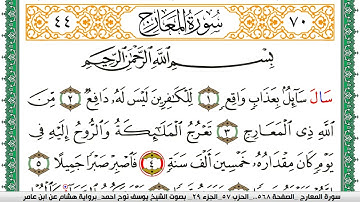 ٤٤ سُورَةُ المَعَارِجِ ٧٠
بِسْمِ اللَّهِ الرَّحْمَٰنِ الرَّحِيمِ
سَالَ سَآئِلُۢ بِعَذَابٖ وَاقِعٖ ١ لِّلۡكَٰفِرِينَ لَيۡسَ لَهُۥ دَافِعٞ ٢ مِّنَ
ٱللَّهِ ذِي ٱلۡمَعَارِجِ ٣ تَعۡرُجُ ٱلۡمَلَٰٓئِكَةُ وَٱلرُّوحُ إِلَيۡهِ فِي
يَوۡمٖ كَانَ مِقۡدَارُهُۥ خَمۡسِينَ أَلۡفَ سَنَةٖ ٤ فَٱصۡبِرۡ صَبۡرٗا جَمِيلًا ٥
سورة المعارج .. الصفحة ٥٦٨ .. الحزب ٥٧ .. الجزء ٢٩ .. بصوت الشيخ يوسف نوح احمد .. برواية هشام عن ابن عامر